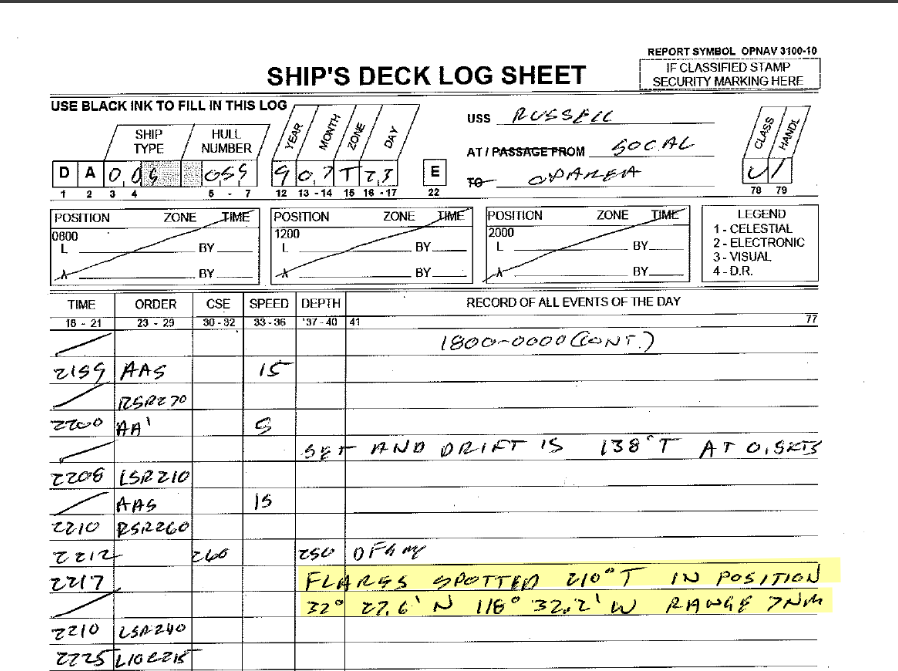 REPORT SYMBOL OPNAV 3100-10
SHIP'S DECK LOG SHEET
IF CLASSIFIED STAMP
SECURITY MARKING HERE
USE BLACK INK TO FILL IN THIS LOG
SHIP TYPE HULL NUMBER YEAR MONTH ZONE DAY
USS RUSSELL
CLASS HANDL
AT / PASSAGE FROM SOCAL
TO OPAREA
D A 0 T 23 E U 1
1 2 3 4 5 - 7 12 13 - 14 15 16 - 17 22 78 79
POSITION ZONE TIME POSITION ZONE TIME POSITION ZONE TIME LEGEND
0800 1200 2000 1 - CELESTIAL
L BY L BY L BY 2 - ELECTRONIC
3 - VISUAL
λ BY λ BY λ BY 4 - D.R.
TIME ORDER CSE SPEED DEPTH RECORD OF ALL EVENTS OF THE DAY
18 - 21 23 - 29 30 - 32 33 - 36 '37 - 40 41 77
1800-0000 (CONT.)
2159 AAS 15
RSR270
2200 AA1 5
SET AND DRIFT IS 138°T AT 0.5KTS
2208 LSR210
AAS 15
2210 RSR260
2212 260 250
2217 FLARES SPOTTED 210°T IN POSITION
32° 27.6' N 118° 32.2' W RANGE 7NM
2210 LSR240
2225